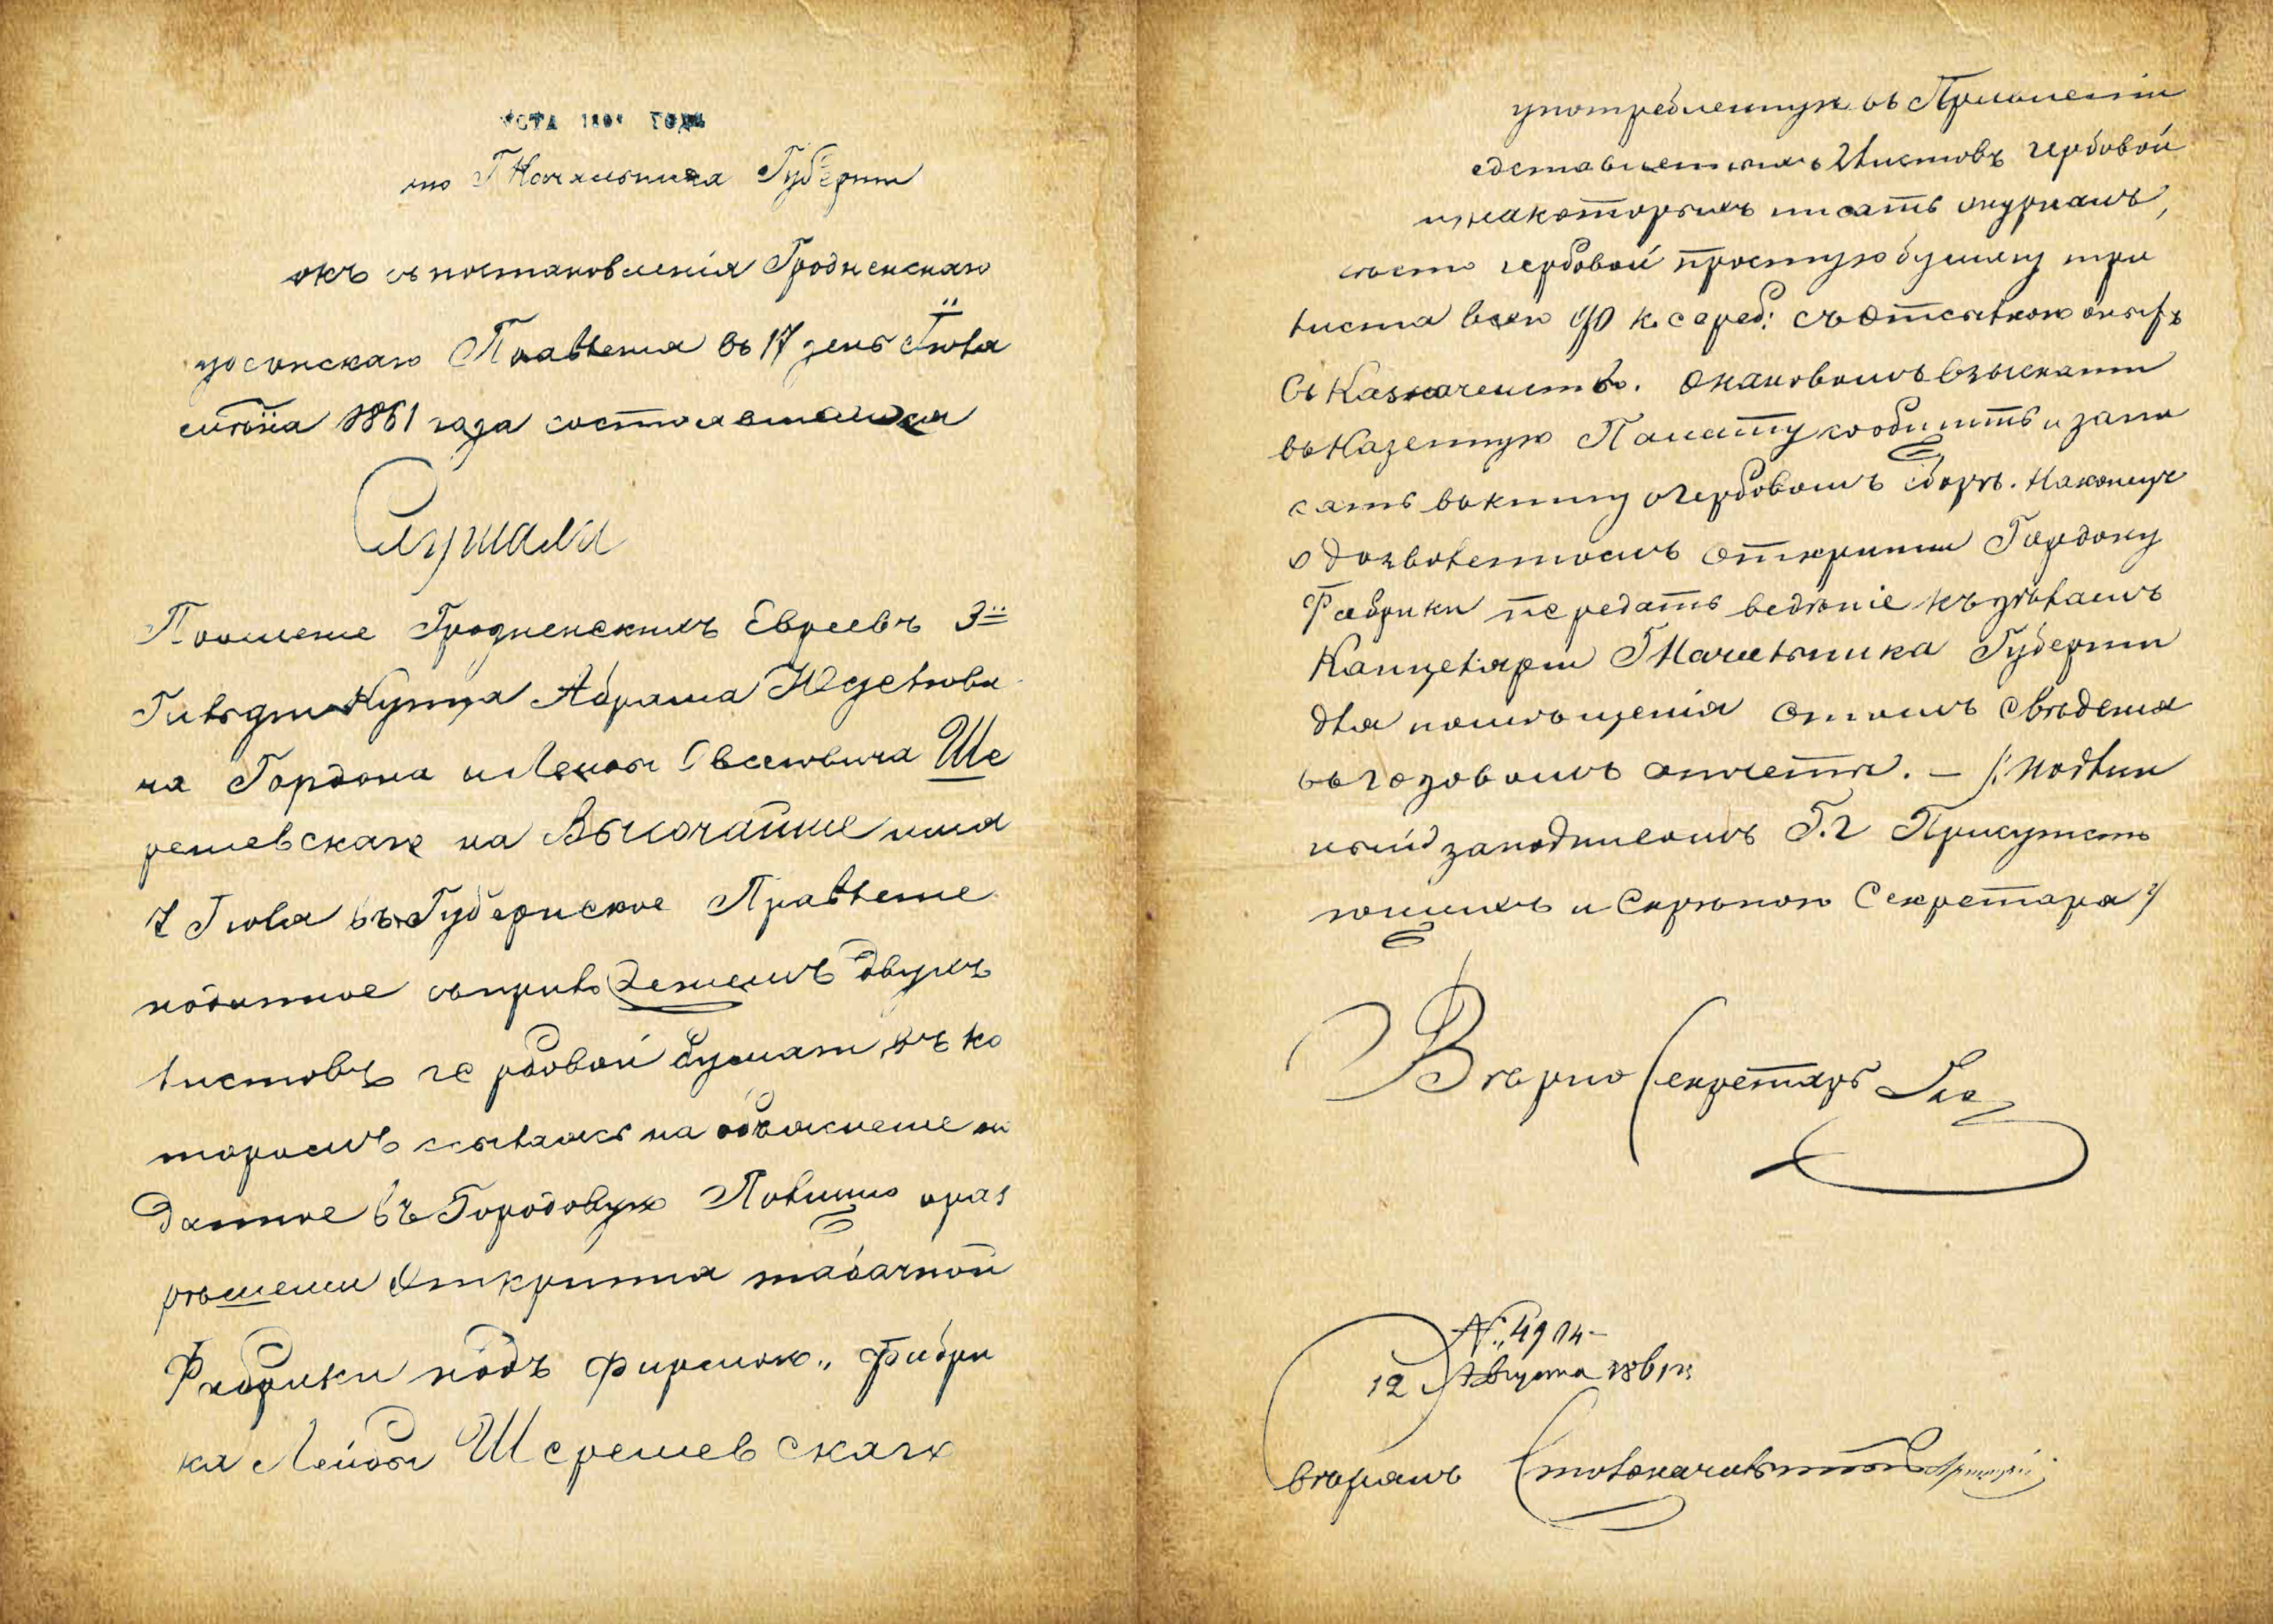 УСТА 186 ГОДА
Г Начальника Губерніи
окъ съ постановленія Гродненскаго
Правленія въ 17 день Іюля
1861 года состоявшагося
Слушали
Прошеніе Гродненскихъ Евреевъ 3й
Гильдіи Купца Абрама Юделіови
ча Гордона и Лейбы Овсеевича Ше
решевскаго на Высочайшее имя
7 Іюля въ Губернское Правленіе
поданное съ приложеніемъ двухъ
листовъ гербовой бумаги, въ ко
торомъ ссылаясь на объясненіе по
данное въ Городовую Полицію о раз
рѣшеніи открытія табачной
Фабрики подъ фирмою „Фабри
ка Лейбы Шерешевскаго
употребленную въ Правленіи
едставленныхъ листовъ гербовой
на которыхъ писать журналъ,
гербовой простую бумагу три
листа всего 90 к. сереб: съ отсылкою оныхъ
въ Казначейство. О каковомъ взысканіи
въ Казенную Палату сообщить и запи
сать въ книгу о гербовомъ сборѣ. Наконецъ
о дозволенномъ открытіи Гордону
Фабрики передать вѣдѣніе къ дѣламъ
Канцеляріи Г Начальника Губерніи
для помѣщенія о томъ свѣденія
въ годовомъ отчетѣ. — /: Подлин
ный за подписомъ Г.г Присутств
ующихъ и скрѣпою Секретаря :/
Вѣрно Секретарь
N. 4904
12 Августа 1861 г.
Вѣрялъ Столоначальникъ